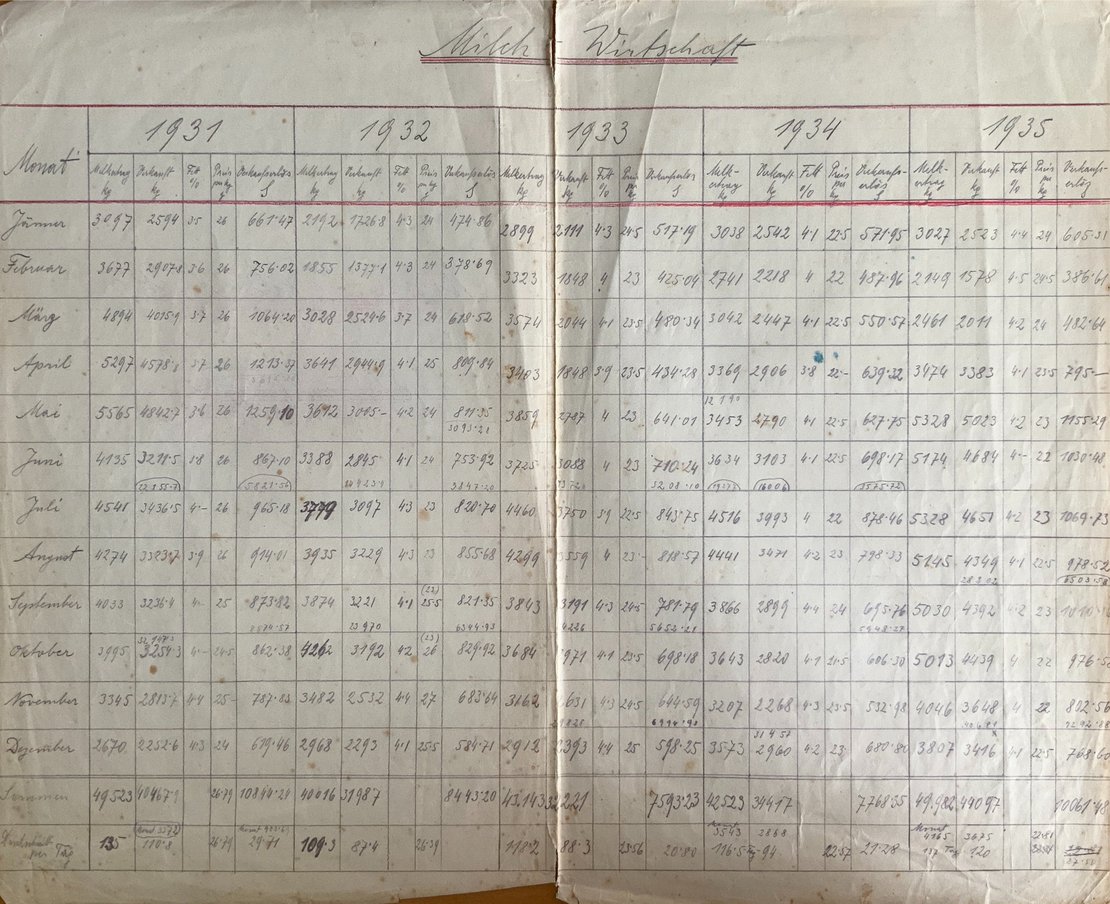 Milch-Wirtschaft
1931 1932 1933 1934 1935
Monat Melkertrag kg Verkauft kg Fett % Preis per kg Verkaufserlös S Melkertrag kg Verkauft kg Fett % Preis per kg Verkaufserlös S Melkertrag kg Verkauft kg Fett % Preis per kg Verkaufserlös S Melk-ertrag kg Verkauft kg Fett % Preis per kg Verkaufs-erlös S Melk-ertrag kg Verkauft kg Fett % Preis per kg Verkaufs-erlös
Jänner 3097 2594 3·5 26 661·47 2192 1726·8 4·3 24 474·86 2899 2111 4·3 24·5 517·19 3038 2542 4·1 22·5 571·95 3027 2523 4·4 24 605·31
Februar 3677 2907·8 3·6 26 756·02 1855 1377·1 4·3 24 378·69 3323 1848 4 23 425·04 2741 2218 4 22 487·96 2149 1578 4·5 24·5 386·61
März 4894 4015·9 3·7 26 1064·20 3028 2524·6 3·7 24 618·52 3574 2044 4·1 23·5 480·34 3042 2447 4·1 22·5 550·57 2461 2011 4·2 24 482·64
April 5297 4578· 3·7 26 1213·37 3641 2944·9 4·1 25 809·84 3403 1848 3·9 23·5 434·28 3369 2906 3·8 22·- 639·32 3474 3383 4·1 23·5 795—
12190
Mai 5565 4842·7 3·6 26 1259·10 3612 3005- 4·2 24 811·35 3859 2787 4 23 641·01 3453 2790 4·1 22·5 627·75 5328 5023 4·2 23 1155·29
3093·21
Juni 4135 3211·5 3·8 26 867·10 3388 2845 4·1 24 753·92 3725 3088 4 23 710·24 3634 3103 4·1 22·5 698·17 5174 4684 4·- 22 1030·48
22155·7 5821·56 14423·9 3847·20 3208·10 19277 16006 3575·72
Juli 4541 3436·5 4·- 26 965·18 3779 3097 4·3 23 820·70 4460 3750 3·9 22·5 843·75 4516 3993 4 22 878·46 5328 4651 4·2 23 1069·73
August 4274 3323·7 3·9 26 914·01 3935 3229 4·3 23 855·68 4299 3559 4 23·- 818·57 4441 3471 4·2 23 798·33 5145 4349 4·1 22·5 978·52
28302 6503·58
September 4033 3236·4 4·- 25 873·82 3874 3221 4·1 (23) 25·5 821·35 3843 3191 4·3 24·5 781·79 3866 2899 4·4 24 695·76 5030 4392 4·2 23
8574·57 23970 6344·93 5652·21 5948·27
Oktober 3995 3254·3 4·- 24·5 862·38 4262 3192 4·2 (23) 26 829·92 3684 2971 4·1 23·5 698·18 3643 2820 4·1 21·5 606·30 5013 4439 4 22 976·52
November 3345 2813·7 4·4 25- 787·83 3482 2532 4·4 27 683·64 3162 2631 4·3 24·5 644·59 3207 2268 4·3 23·5 532·98 4046 3648 4 22 802·56
29828 6994·98 31457
Dezember 2670 2252·6 4·3 24 619·46 2968 2293 4·1 25·5 584·71 2912 2393 4·4 25 598·25 3573 2960 4·2 23· 680·80 3807 3416 4·1 22·5 768·60
Summen 49523 40467·9 26·79 10844·24 40016 31987 8443·20 43,143 32221 7593·23 42523 34417 7768·35 49,982 44097 10061·48
Monat 3372 Monat 3543 2868 Monat 4165 3675 22·81
per Tag 135 110·8 26·79 29·71 109·3 87·4 26·39 118·2 88·3 23·56 20·80 116·5 94 22·57 21·28 137 Tag 120 27·56